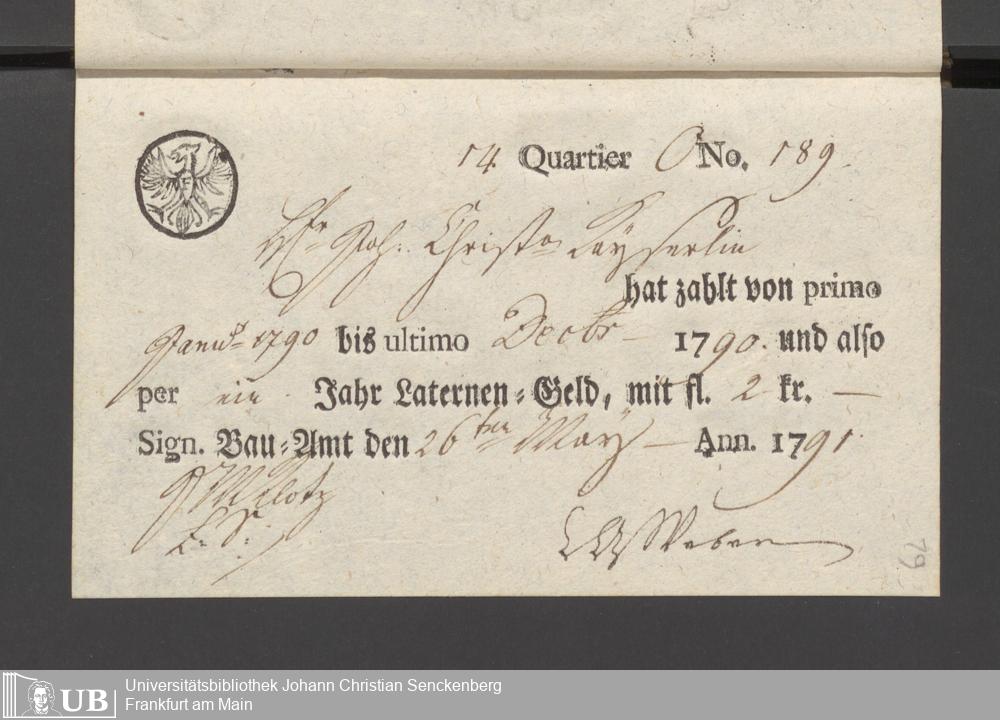 14. Quartier O No. 189.
Hr Joh: Christn Kayserlin
hat zahlt von primo
Janu 1790 bis ultimo Decbr – 1790. und also
per ein Jahr Laternen-Geld, mit fl. 2 kr. —
Sign. Bau-Amt den 26ten May – Ann. 1791.
L: S:
Weber
79
UB Universitätsbibliothek Johann Christian Senckenberg
Frankfurt am Main